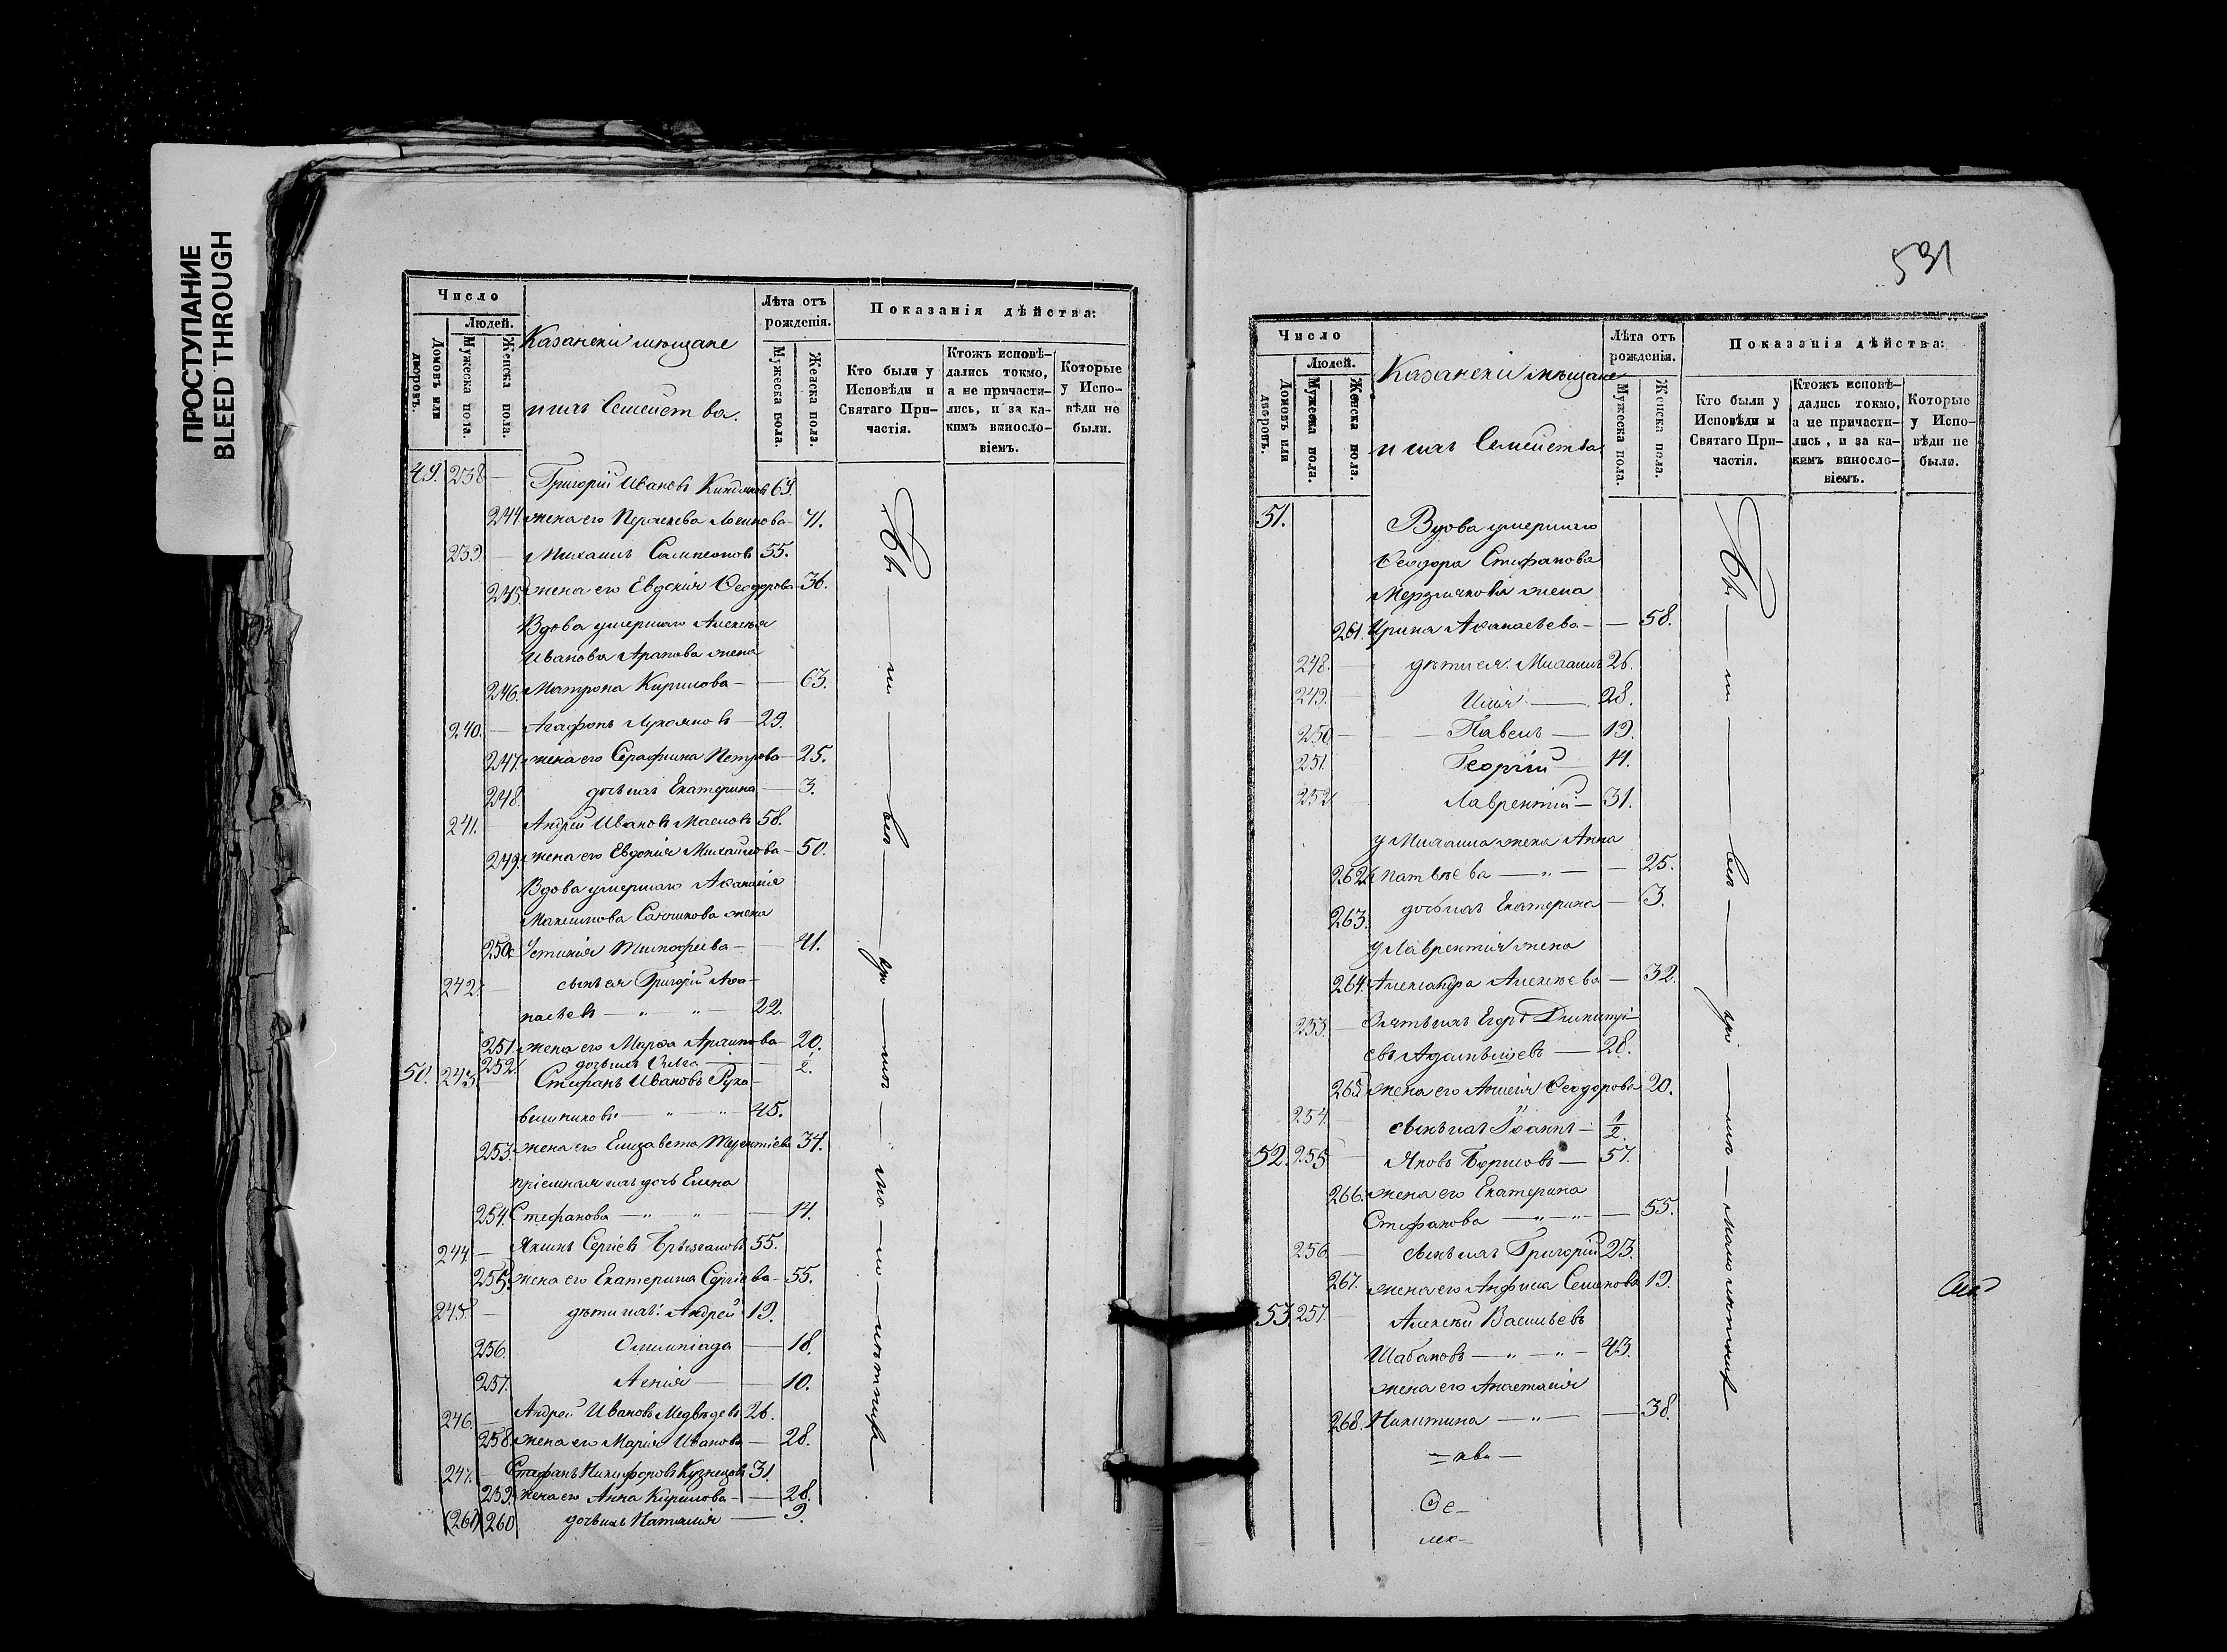 ПРОСТУПАНИЕ
BLEED THROUGH
Число
Людей.
Домовъ или дворовъ.
Мужеска пола.
Женска пола.
Казанскіи мещане
и ихъ Семейства.
Лѣта отъ рожденія.
Мужеска пола.
Женска пола.
Показанія дѣйства:
Кто были у Исповѣди и Святаго Причастія.
Ктожъ исповѣдались токмо, а не причастились, и за какимъ винословіемъ.
Которые у Исповѣди не были.
49. 238 — Григорій Ивановъ 69.
244 жена его Логинова — 41.
239. — Михаилъ Сампсоновъ 55.
245. жена его Евдокія Ѳеодорова — 36.
Вдова умершаго Алексѣя
Иванова Арапова жена
246. Матрона Кирилова — — 63.
240. — Агафонъ Лукояновъ — 29.
247. жена его Серафима Петрова — 25.
248. дочь ихъ Екатерина — 3.
241. — Андрей Ивановъ Масловъ 58.
249. жена его Евдокія Михайлова — 50.
Вдова умершаго Аѳанасія
Максимова жена
250. Устинія Тимофеева — — 41.
242. — сынъ ея Григорій Аѳа-
насьевъ — " — " — 22.
251. жена его Марѳа Архипова — 20.
252. дочь ихъ Ольга — — 1/2.
50. 243. Стефанъ Ивановъ Рука-
вишниковъ — " — " — 45.
253. жена его Елизавета Терентіева 34.
пріемная ихъ дочь Елена
254. Стефанова — " — " — — 14.
244 — Якимъ Сергіевъ 55.
255. жена его Екатерина Сергіева — 55.
245. — дѣти ихъ: Андрей 19.
256. Олимпіада — 18.
257. Агнія — — 10.
246. — Андрей Ивановъ Медвѣдевъ 26.
258. жена его Марія Иванова — 28.
247. — Стефанъ Никифоровъ Кузнецовъ 31.
259. жена его Анна Кирилова — — 28.
(261) 260 дочь ихъ Наталія — 9.
531
Число
Людей.
Домовъ или дворовъ.
Мужеска пола.
Женска пола.
Казанскіи мѣщане
и ихъ Семейства
Лѣта отъ рожденія.
Мужеска пола.
Женска пола.
Показанія дѣйства:
Кто были у Исповѣди и Святаго Причастія.
Ктожъ исповѣдались токмо, а не причастились, и за какимъ винословіемъ.
Которые у Исповѣди не были.
51. Вдова умершаго
Ѳеодора Стефанова
Мерзлякова жена
261. Ирина Аѳанасьева — — 58.
248. — дѣти ея: Михаилъ 26.
249. — Илія — 28.
250 — — Павелъ — 19.
251. Георгій — 14.
252 — Лаврентій — 31.
у Михаила жена Анна
262. — " — — 25.
263. дочь ихъ Екатерина — 3.
у Лаврентія жена
264. Александра Алексѣева — 32.
253. — Зять ихъ Егоръ Димитрі-
евъ — 28.
265. жена его Ѳеодорова 20.
254. — сынъ ихъ Іоаннъ — 1/2.
52. 255 — Яковъ Борисовъ — 57.
266. жена его Екатерина
Стефанова — " — " — — 55.
256. — сынъ ихъ Григорій 23.
267. жена его Анфиса Семенова 19.
53. 257. — Алексѣй Васильевъ
Шабановъ — " — " — 43.
жена его Анастасія
268. Никитина — " — — 38.